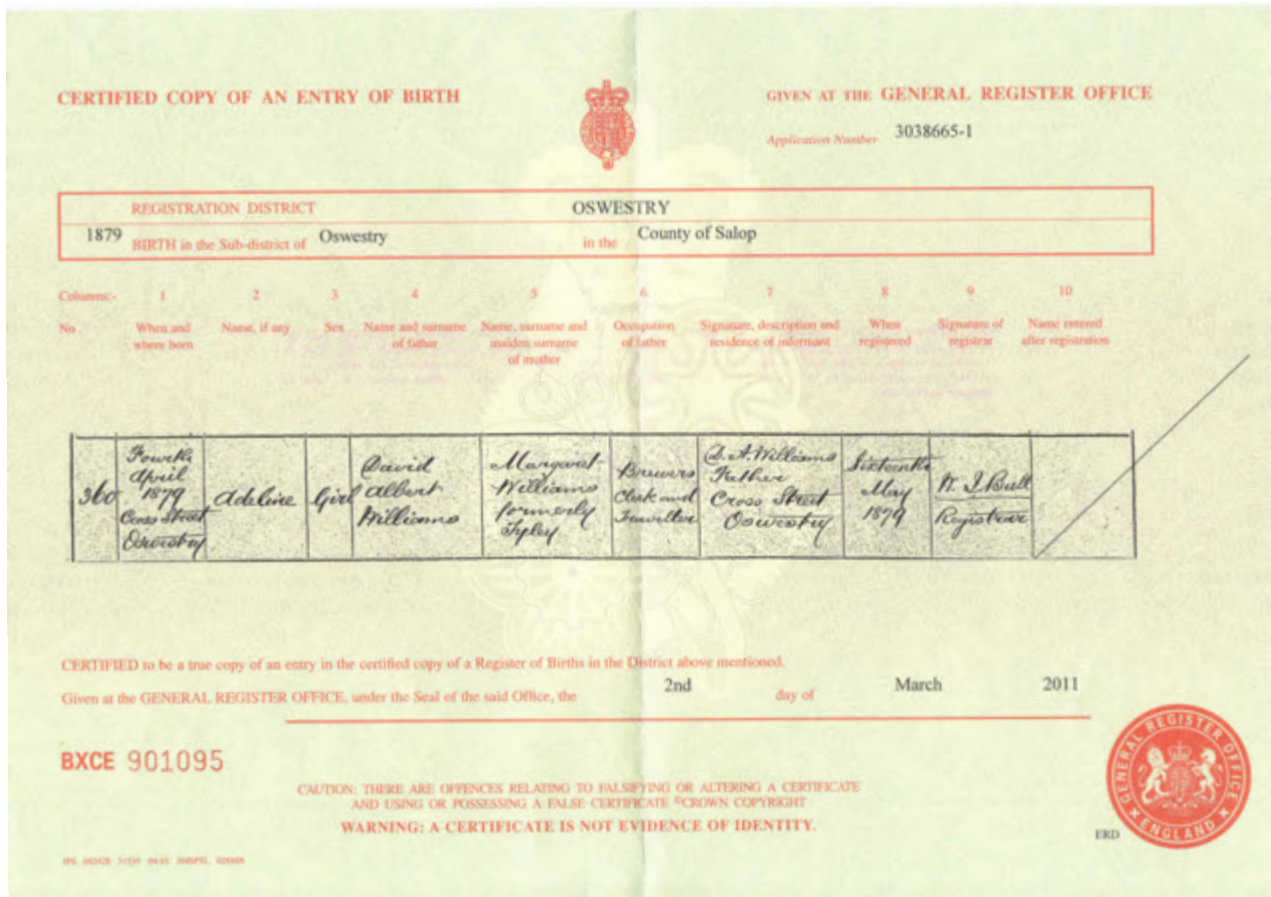 CERTIFIED COPY OF AN ENTRY OF BIRTH
GIVEN AT THE GENERAL REGISTER OFFICE
Application Number 3038665-1
REGISTRATION DISTRICT OSWESTRY
1879 BIRTH in the Sub-district of Oswestry in the County of Salop
Columns:- 1 2 3 4 5 6 7 8 9 10
No. When and where born Name, if any Sex Name and surname of father Name, surname and maiden surname of mother Occupation of father Signature, description and residence of informant When registered Signature of registrar Name entered after registration
360
Fourth
April
1879
Cross Street
Oswestry
Adeline
Girl
David
Albert
Williams
Margaret
Williams
formerly
Brewers
Clerk and
Traveller
D. A. Williams
Father
Cross Street
Oswestry
Sixteenth
May
1879
Bull
Registrar
CERTIFIED to be a true copy of an entry in the certified copy of a Register of Births in the District above mentioned.
Given at the GENERAL REGISTER OFFICE, under the Seal of the said Office, the 2nd day of March 2011
BXCE 901095
CAUTION: THERE ARE OFFENCES RELATING TO FALSIFYING OR ALTERING A CERTIFICATE
AND USING OR POSSESSING A FALSE CERTIFICATE ©CROWN COPYRIGHT
WARNING: A CERTIFICATE IS NOT EVIDENCE OF IDENTITY.
GENERAL REGISTER OFFICE
ENGLAND
ERD